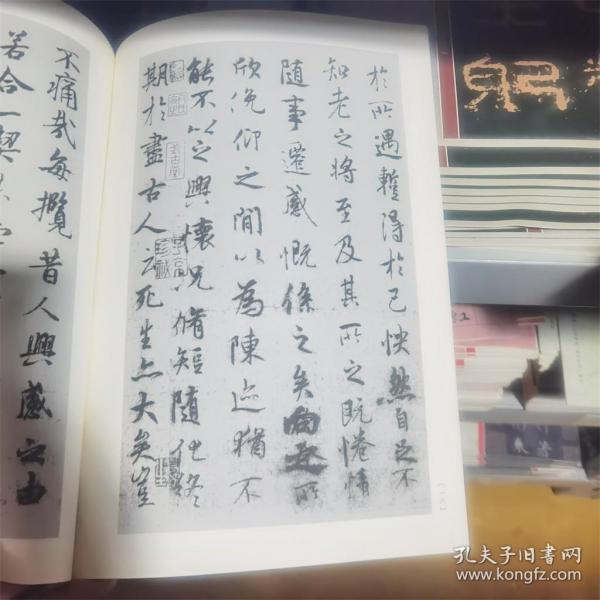 於所遇蹔得於己快然自足不
知老之將至及其所之既惓情
隨事遷感慨係之矣向之所
欣俛仰之閒以為陳迹猶不
能不以之興懷況脩短隨化終
期於盡古人云死生亦大矣豈
不痛哉每攬昔人興感之由
若合一契未
孔夫子旧书网
www.kongfz.com